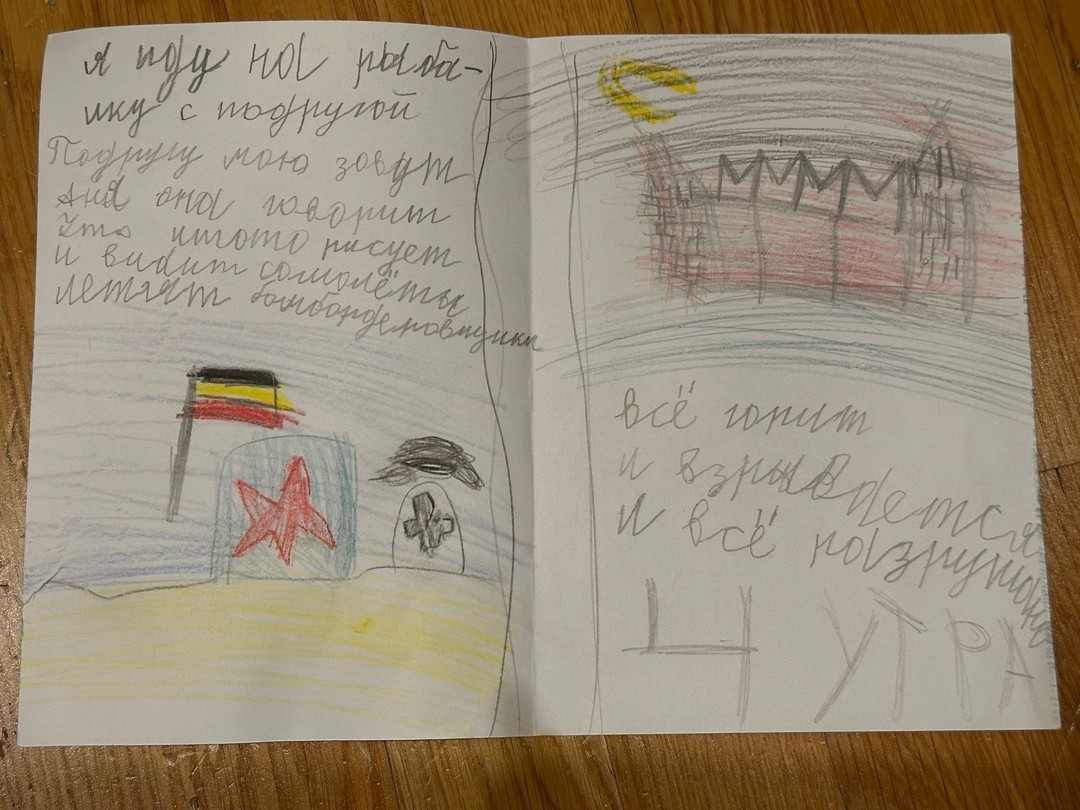 я иду на рыба-
лку с подругой
Подругу мою зовут
аня она говорит
Что штото рисует
и видит самолёты
летят бомбордеровщики
всё горит
и взрывается
и всё разрушено
4 УТРА